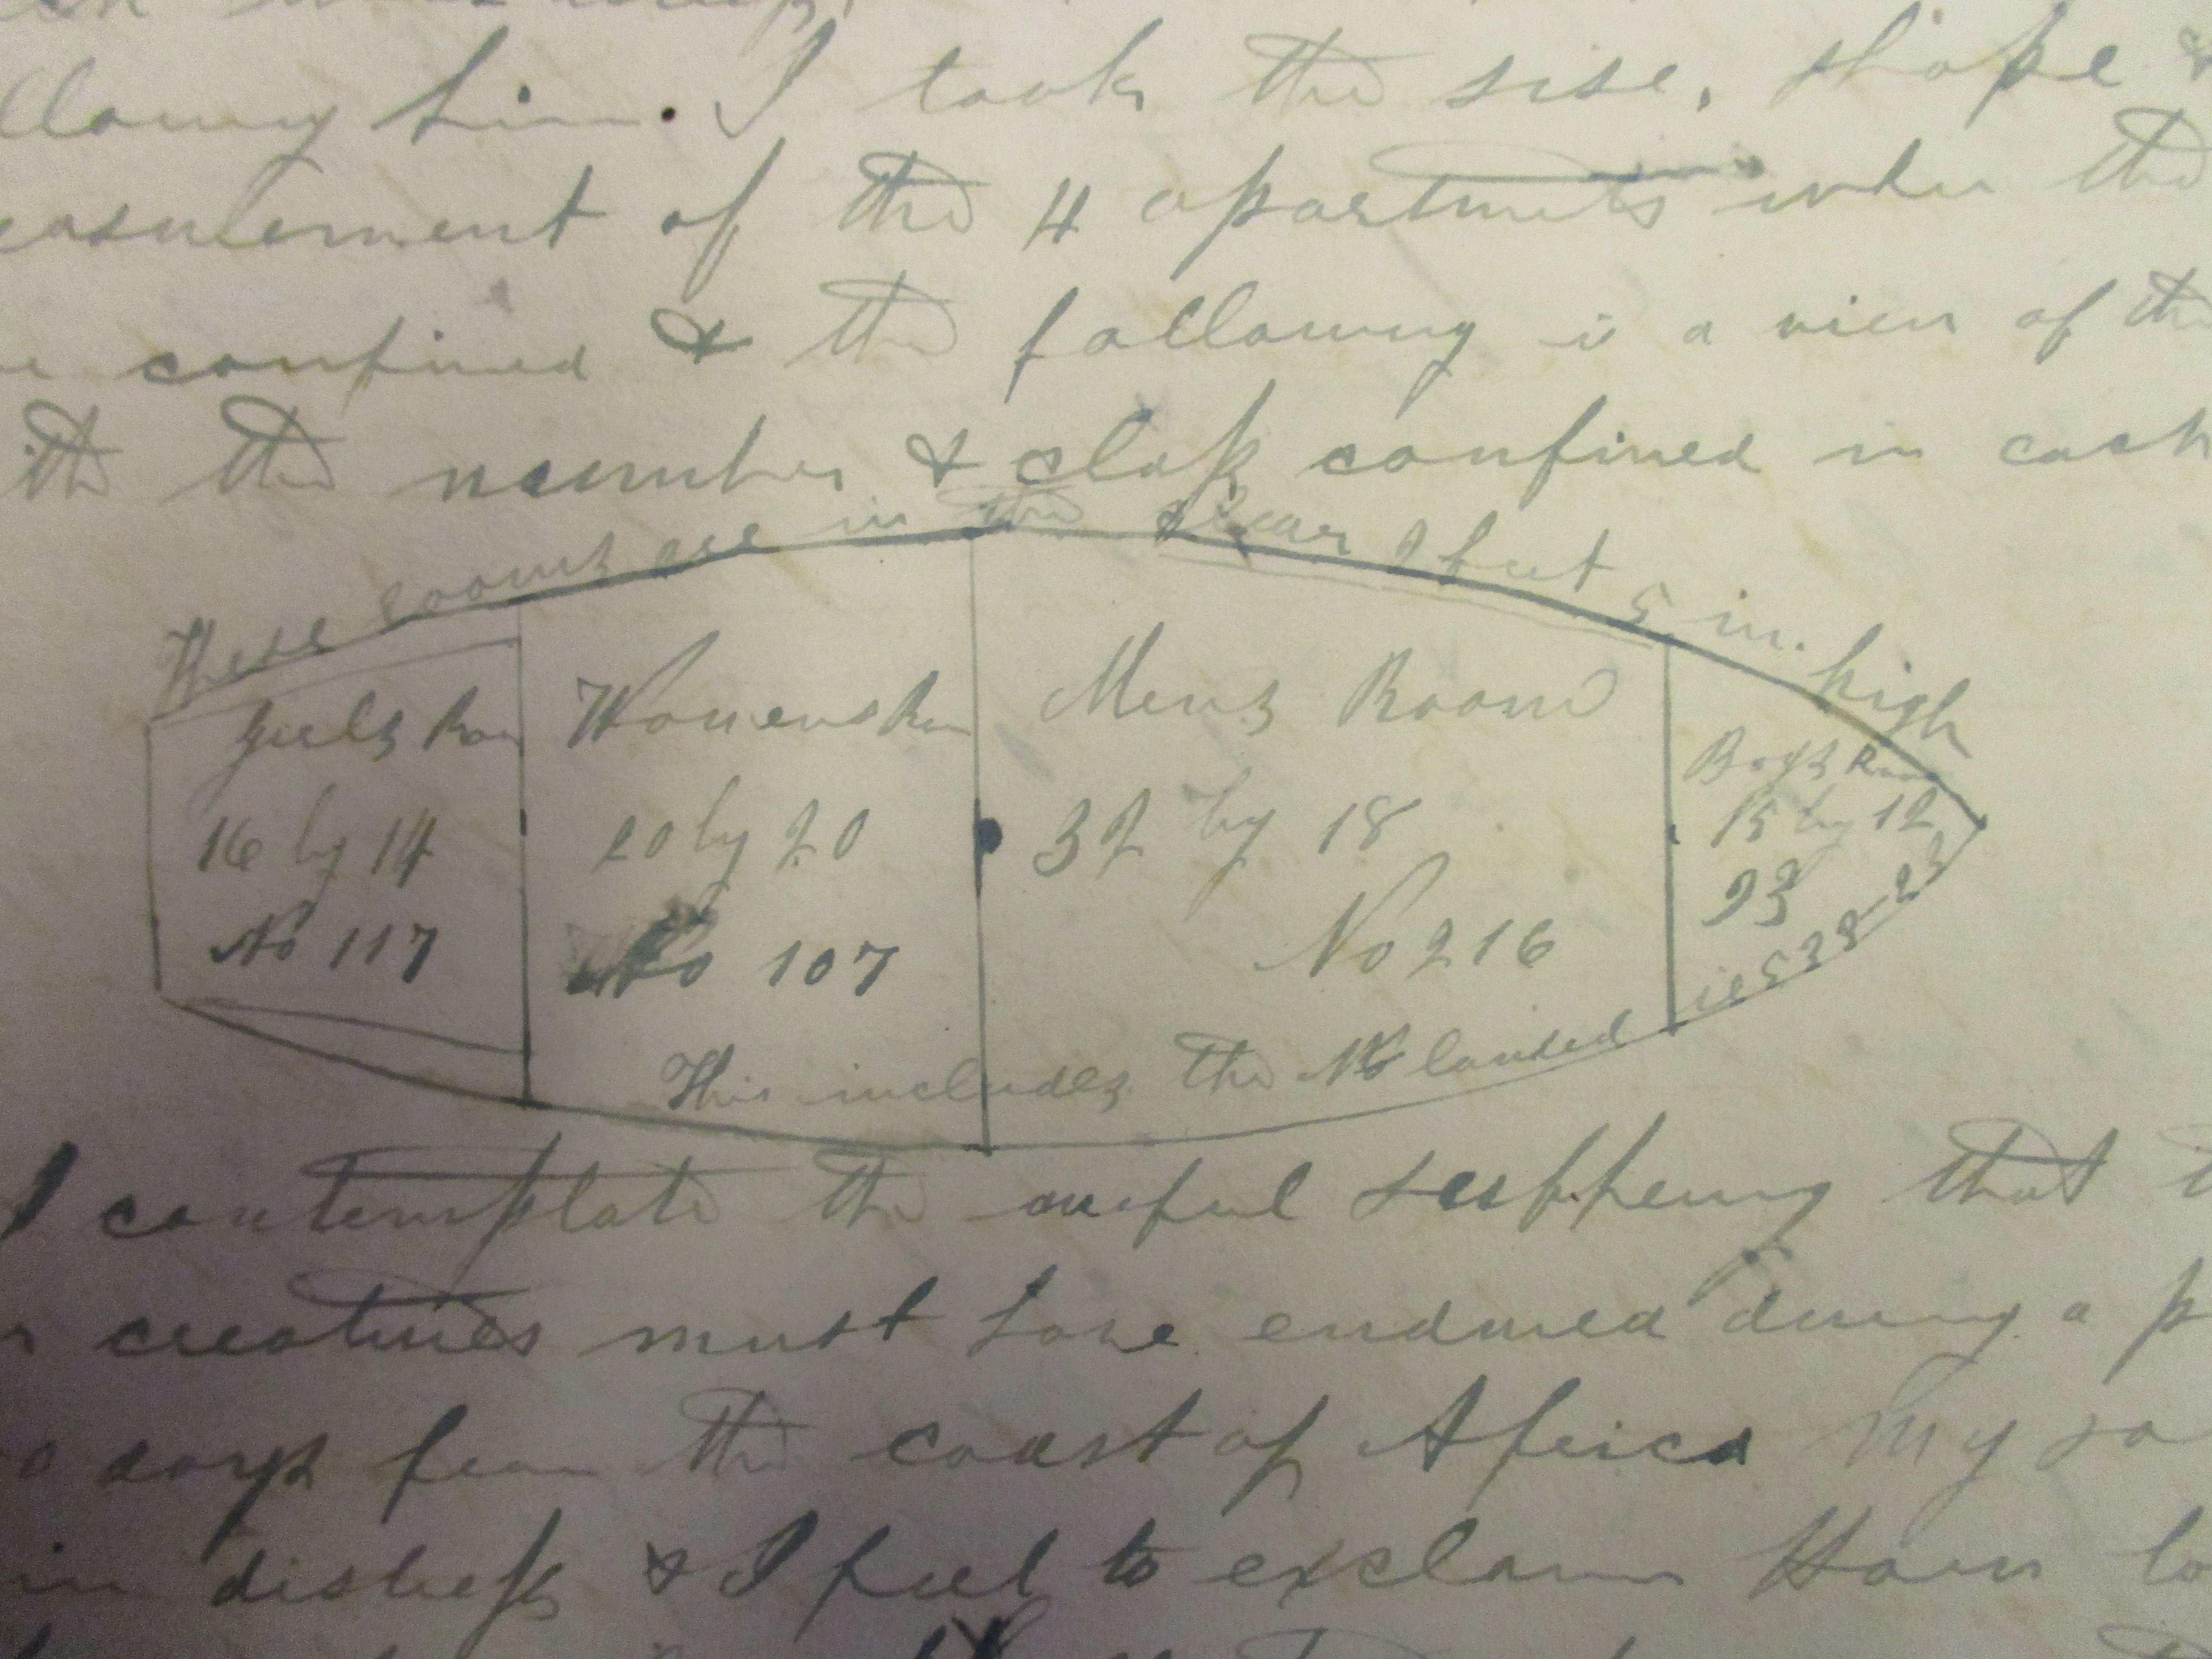 llowing him. I took the sise, shape &
easurement of the 4 apartments wher the
re confined & the following is a view of the
ith the number & class confined in each
These rooms are in the clear 2 feet 5 in. high
Girls Roo
16 by 14
No 117
Womens Rm
20 by 20
No 107
Mens Room
32 by 18
No 216
Boys Room
15 by 12
93
This includes the No landed
ie 538-23
I contemplate the awful suffering that t
r creatures must have endured during a p
0 days from the coast of Africa My so
in distress & I feel to exclaim How lo